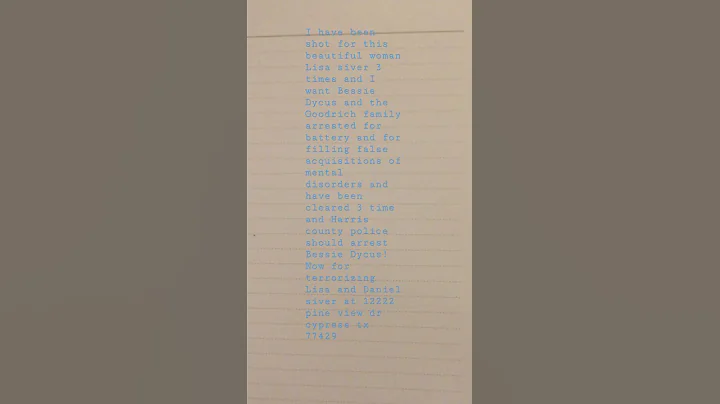 I have been
shot for this
beautiful woman
Lisa siver 3
times and I
want Bessie
Dycus and the
Goodrich family
arrested for
battery and for
filling false
acquisitions of
mental
disorders and
have been
cleared 3 time
and Harris
county police
should arrest
Bessie Dycus!
Now for
terrorizing
Lisa and Daniel
siver at 12222
pine view dr
cypress tx
77429